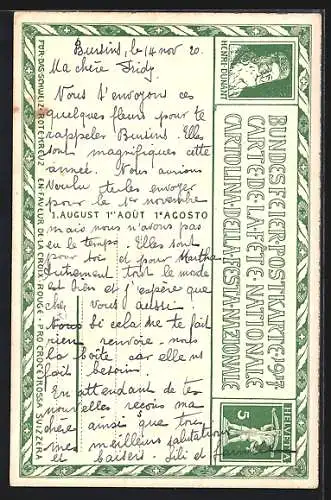 Bursins, le 14 nov 20.
Ma chère Fridy.
Nous t'envoyons ces
quelques fleurs pour te
rappeler Bursins. Elles
sont magnifiques cette
année. Nous aurions
voulu te les envoyer
pour le 1er novembre
1. AUGUST 1er AOÛT 1° AGOSTO
mais nous n'avons pas
eu le temps. Elles sont
pour toi et pour Martha
Autrement tout le monde
est bien et j'espère que
chez vous aussi.
Nous si cela ne te fait
rien renvoie-nous
la boîte car elle nous
fait besoin.
En attendant de tes
nouvelles reçois ma
chère ainsi que tes
meilleurs salutations
et baisers. Lili et famille
FÜR DAS SCHWEIZ. ROTE KREUZ EN FAVEUR DE LA CROIX-ROUGE - PRO CROCE ROSSA SVIZZERA
HENRI DUNANT
BUNDESFEIER-POSTKARTE 1917
CARTE DE LA FÊTE NATIONALE
CARTOLINA DELLA FESTA NAZIONALE
5
HELVETIA